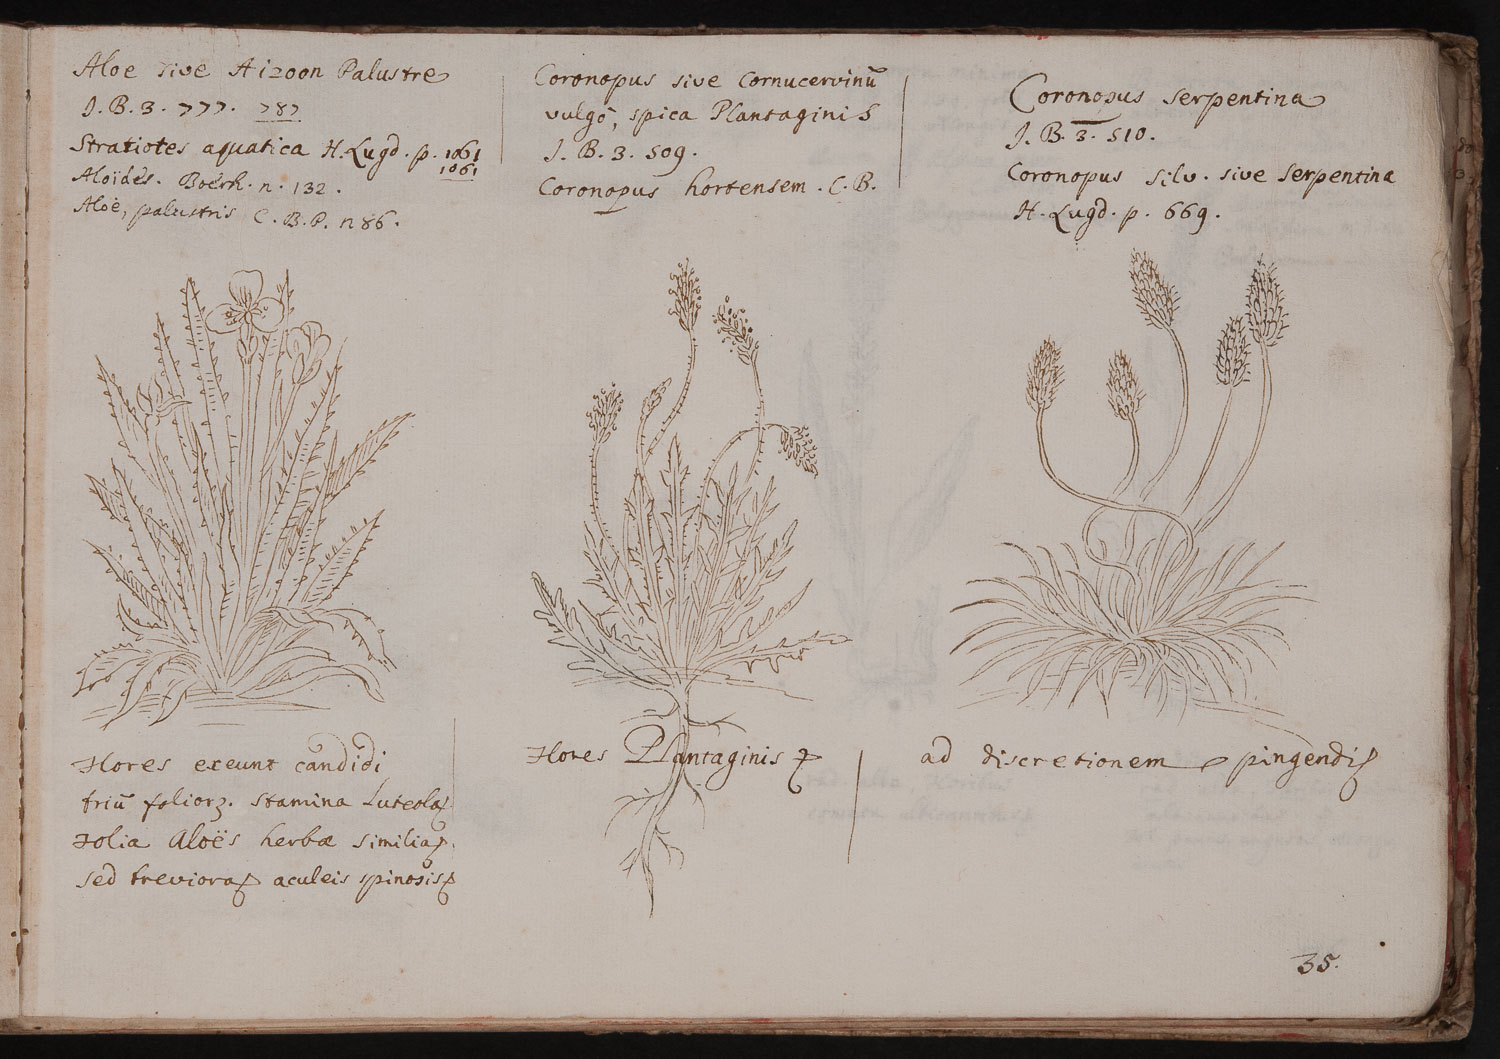 Aloe sive Aizoon Palustre
J. B. 3. 777. 787
Stratiotes aquatica H. Lugd. p. 1061
1061
Aloïdes. Boerh. n. 132.
Aloë, palustris C. B. P. n 86.
Coronopus sive Cornucervinū
vulgò, spica Plantaginis
J. B. 3. 509.
Coronopus hortensem. C. B.
Coronopus serpentina
J. B. 3. 510.
Coronopus silv. sive serpentina
H. Lugd. p. 669.
Flores exeunt candidi
triū folior. stamina Luteola
Folia Aloës herbæ similia
sed breviora aculeis spinosis
Flores Plantaginis
ad discretionem pingendi
35.